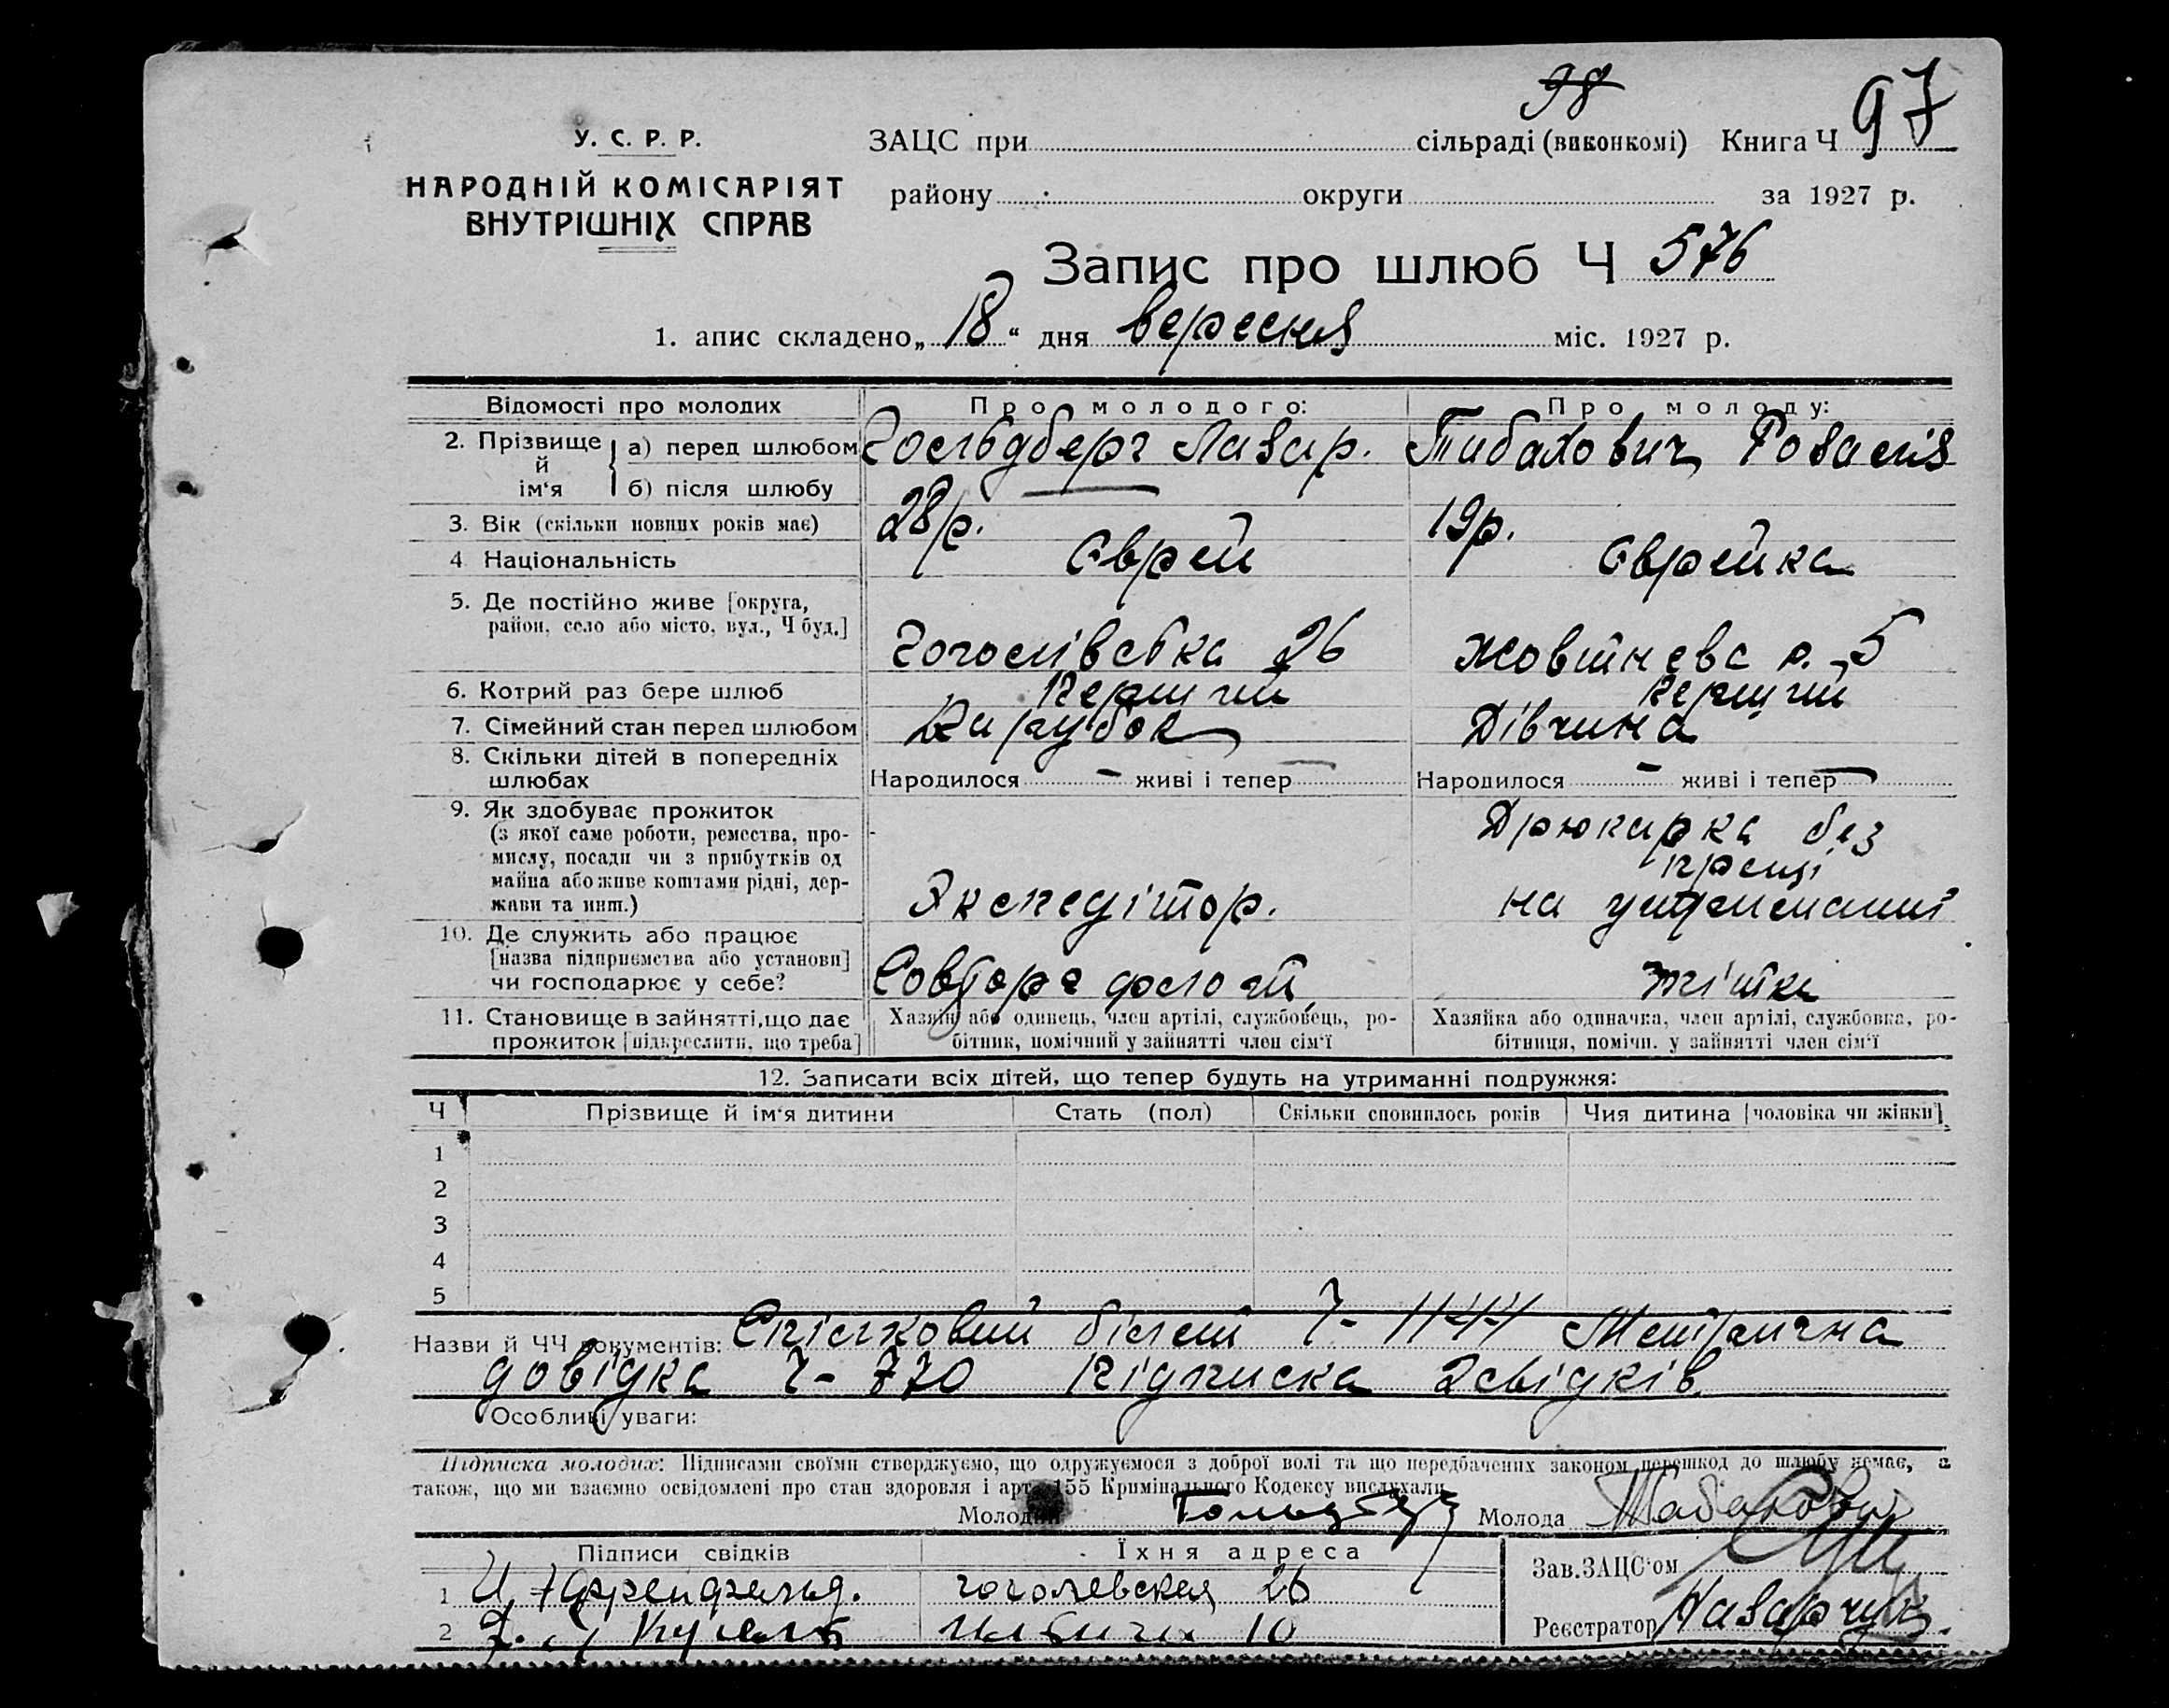 98
У. С. Р. Р.
НАРОДНІЙ КОМІСАРІЯТ
ВНУТРІШНІХ СПРАВ
ЗАЦС при сільраді (виконкомі) Книга Ч 97
району округи за 1927 р.
Запис про шлюб Ч 576
1. апис складено „18“ дня вересня міс. 1927 р.
Відомості про молодих Про молодого: Про молоду:
2. Прізвище й ім‘я а) перед шлюбом Гольдберг Лазар. Табахович Розалія
б) після шлюбу
3. Вік (скільки повних років має) 28 р. 19 р.
4 Національність Єврей Єврейка
5. Де постійно живе [округа,
район, село або місто, вул., Ч буд.]
Гоголівська 26 Жовтнева р. 5
6. Котрий раз бере шлюб Перший Перший
7. Сімейний стан перед шлюбом Парубок Дівчина
8. Скільки дітей в попередніх
шлюбах Народилося – живі і тепер – Народилося – живі і тепер –
9. Як здобуває прожиток
(з якої саме роботи, ремества, про-
мислу, посади чи з прибутків од
майна або живе коштами рідні, дер-
жави та инш.)
Экспедітор.
Дрюкарка без
праці
на утриманні
10. Де служить або працює
[назва підприємства або установи]
чи господарює у себе?
Совторгфлот
тітки
11. Становище в зайнятті, що дає
прожиток [підкреслити, що треба]
Хазяїн або одинець, член артілі, службовець, ро-
бітник, помічний у зайнятті член сім‘ї
Хазяйка або одиначка, член артілі, службовка, ро-
бітниця, помічн. у зайнятті член сім‘ї
12. Записати всіх дітей, що тепер будуть на утриманні подружжя:
Ч Прізвище й ім‘я дитини Стать (пол) Скільки сповнилось років Чия дитина [чоловіка чи жінки]
1
2
3
4
5
Назви й ЧЧ документів: Спілковий білет Ч- 1144 Метрична
довідка Ч- 770 Підписка 2 свідків.
Особливі уваги:
Підписка молодих: Підписами своїми стверджуємо, що одружуємося з доброї волі та що передбачених законом перешкод до шлюбу немає, а
також, що ми взаємно освідомлені про стан здоровля і арт. 155 Кримінального Кодексу вислухали
Молодий Гольдберг Молода Табахович
Підписи свідків Їхня адреса
Зав. ЗАЦС‘ом
1 гоголевская 26
2 10
Реєстратор Назарчук.